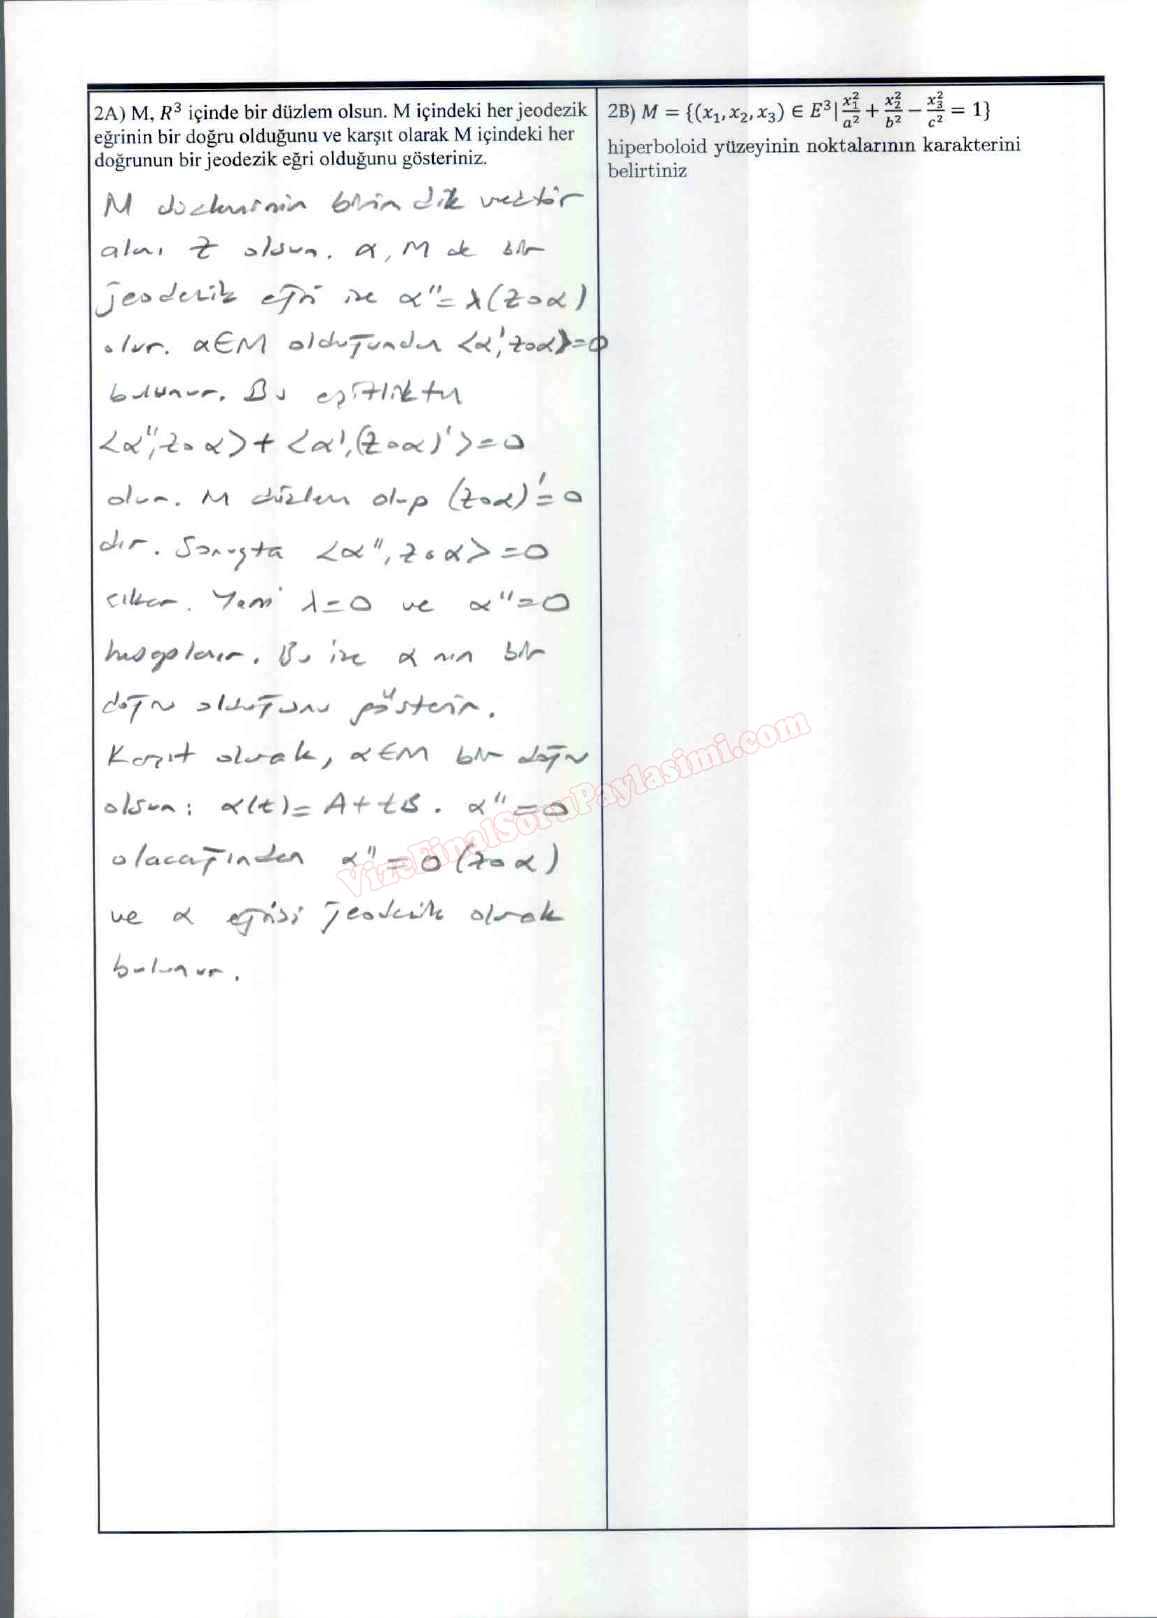 2A) M, R³ içinde bir düzlem olsun. M içindeki her jeodezik
eğrinin bir doğru olduğunu ve karşıt olarak M içindeki her
doğrunun bir jeodezik eğri olduğunu gösteriniz.
M düzleminin birim dik vektör
alanı Z olsun. α, M de bir
jeodezik eğri ise α''=λ(Z∘α)
olur. α∈M olduğundan <α',Z∘α>=0
bulunur. Bu eşitlikten
<α'',Z∘α>+<α',(Z∘α)'>=0
olur. M düzlem olup (Z∘α)'=0
dır. Sonuçta <α'',Z∘α>=0
çıkar. Yani λ=0 ve α''=0
hesaplanır. Bu ise α nın bir
doğru olduğunu gösterir.
Karşıt olarak, α∈M bir doğru
olsun: α(t)=A+tB. α''=0
olacağından α''=0(Z∘α)
ve α eğrisi jeodezik olarak
bulunur.
2B) M = {(x₁,x₂,x₃) ∈ E³| x₁²/a² + x₂²/b² − x₃²/c² = 1}
hiperboloid yüzeyinin noktalarının karakterini
belirtiniz
VizeFinalSoruPaylasimi.com